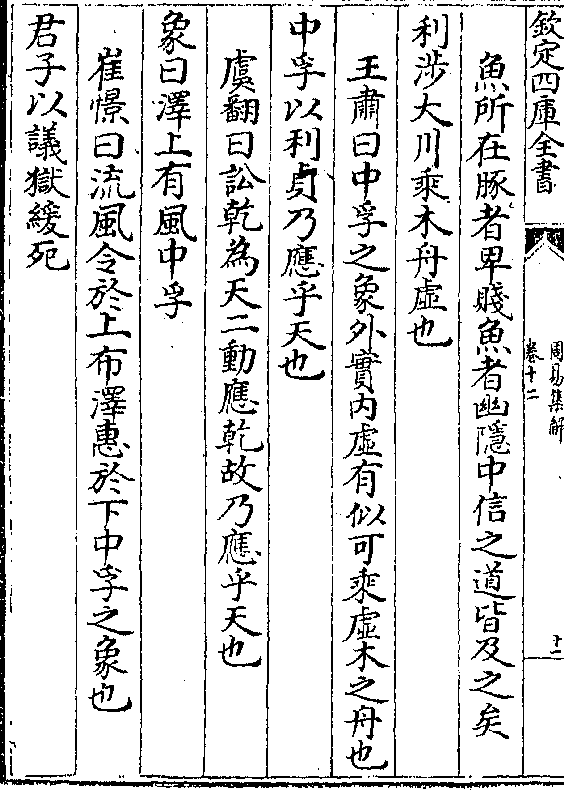 欽定四庫全書
周易集解
卷十二
十二
魚所在豚者卑賤魚者幽隱中信之道皆及之矣
利涉大川乘木舟虛也
王肅曰中孚之象外實內虛有似可乘虛木之舟也
中孚以利貞乃應乎天也
虞翻曰訟乾為天二動應乾故乃應乎天也
象曰澤上有風中孚
崔憬曰流風令於上布澤惠於下中孚之象也
君子以議獄緩死